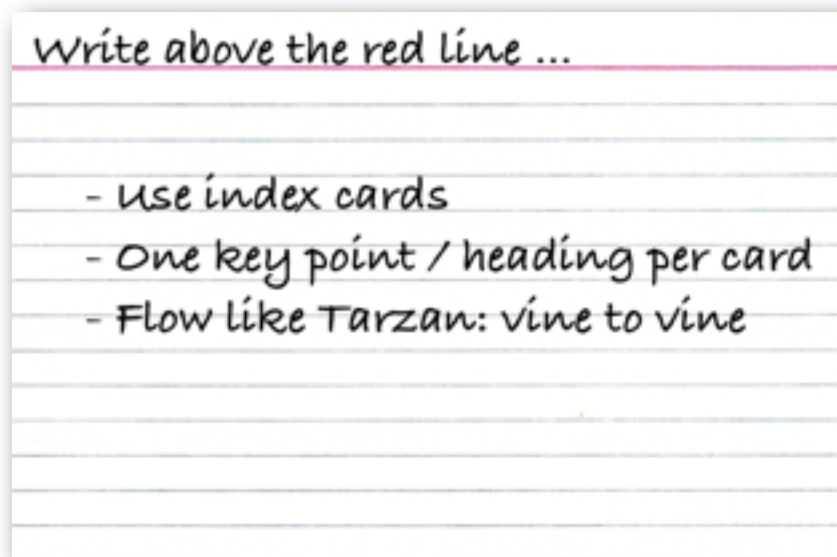 Write above the red line ...
- Use index cards
- One key point / heading per card
- Flow like Tarzan: vine to vine